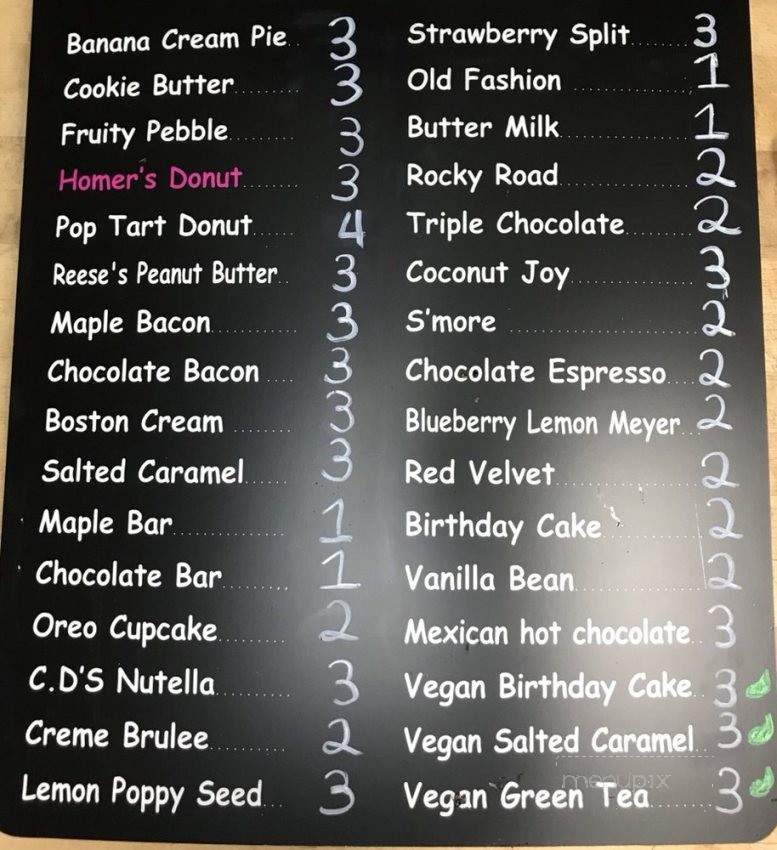 Banana Cream Pie.. 3
Cookie Butter......... 3
Fruity Pebble.......... 3
Homer's Donut........ 3
Pop Tart Donut...... 4
Reese's Peanut Butter.. 3
Maple Bacon............ 3
Chocolate Bacon .... 3
Boston Cream ........ 3
Salted Caramel...... 3
Maple Bar............... 1
Chocolate Bar......... 1
Oreo Cupcake......... 2
C.D'S Nutella.......... 3
Creme Brulee.......... 2
Lemon Poppy Seed... 3
Strawberry Split....... 3
Old Fashion ............... 1
Butter Milk................. 1
Rocky Road................. 2
Triple Chocolate......... 2
Coconut Joy............... 3
S'more ....................... 2
Chocolate Espresso.... 2
Blueberry Lemon Meyer.. 2
Red Velvet.................. 2
Birthday Cake............ 2
Vanilla Bean............... 2
Mexican hot chocolate.. 3
Vegan Birthday Cake.. 3
Vegan Salted Caramel.. 3
Vegan Green Tea....... 3
menupix